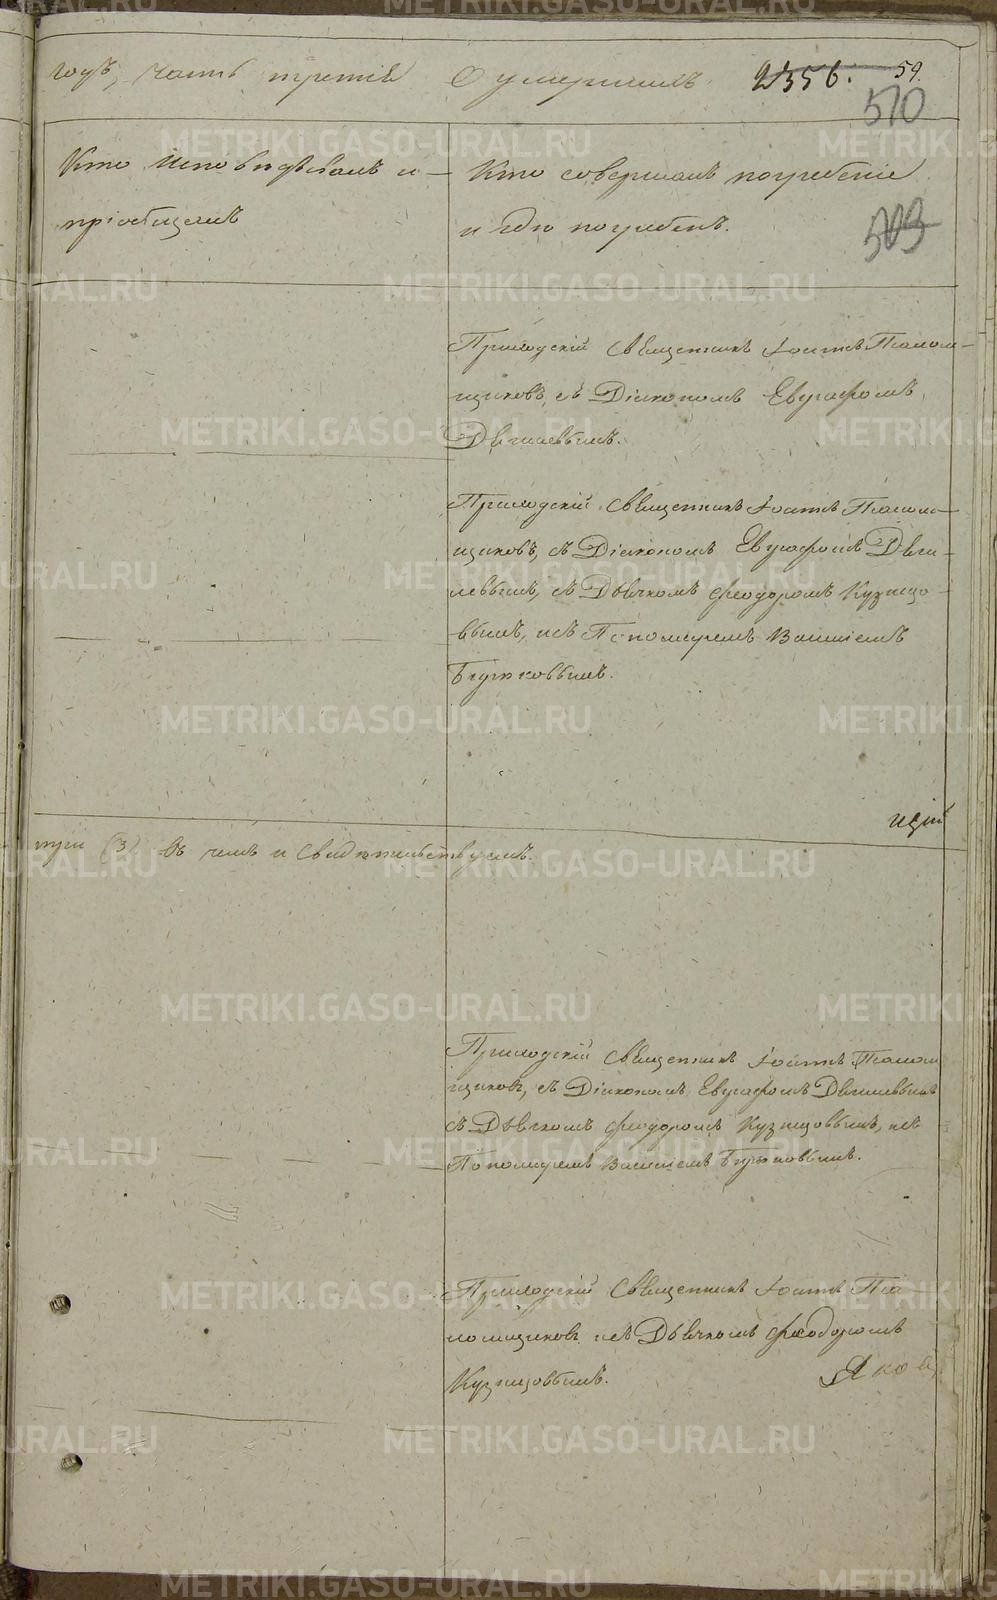 годъ, часть третія О умершихъ 2356. 59
510
Кто исповѣдывалъ и
пріобщалъ
Кто совершалъ погребеніе
и гдѣ погребенъ.
509
Приходскій Священникъ Іоаннъ Палом-
щиковъ, съ Діакономъ Евграфомъ
Приходскій Священникъ Іоаннъ Палом-
щиковъ, съ Діакономъ Евграфомъ
съ Дьячкомъ Феодоромъ Кузнецо-
вымъ, и съ Пономаремъ Василіемъ
Бирюковымъ.
(3) въ чемъ и свидѣтельствуемъ.
Приходскій Священникъ Іоаннъ Палом
щиковъ, съ Діакономъ Евграфомъ
съ Дьячкомъ Феодоромъ Кузнецовымъ, и съ
Пономаремъ Василіемъ Бирюковымъ.
Приходскій Священникъ Іоаннъ Па-
ломщиковъ и съ Дьячкомъ Феодоромъ
Кузнецовымъ.
Яков
METRIKI.GASO-URAL.RU